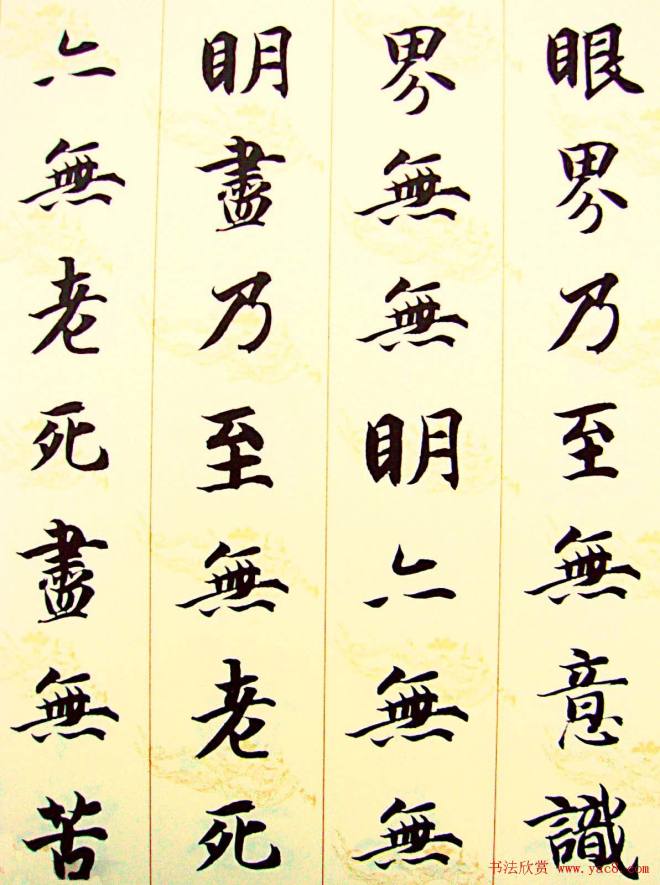 眼界乃至無意識
界無無明亦無無
明盡乃至無老死
亦無老死盡無苦
书法欣赏 www.yac8.com